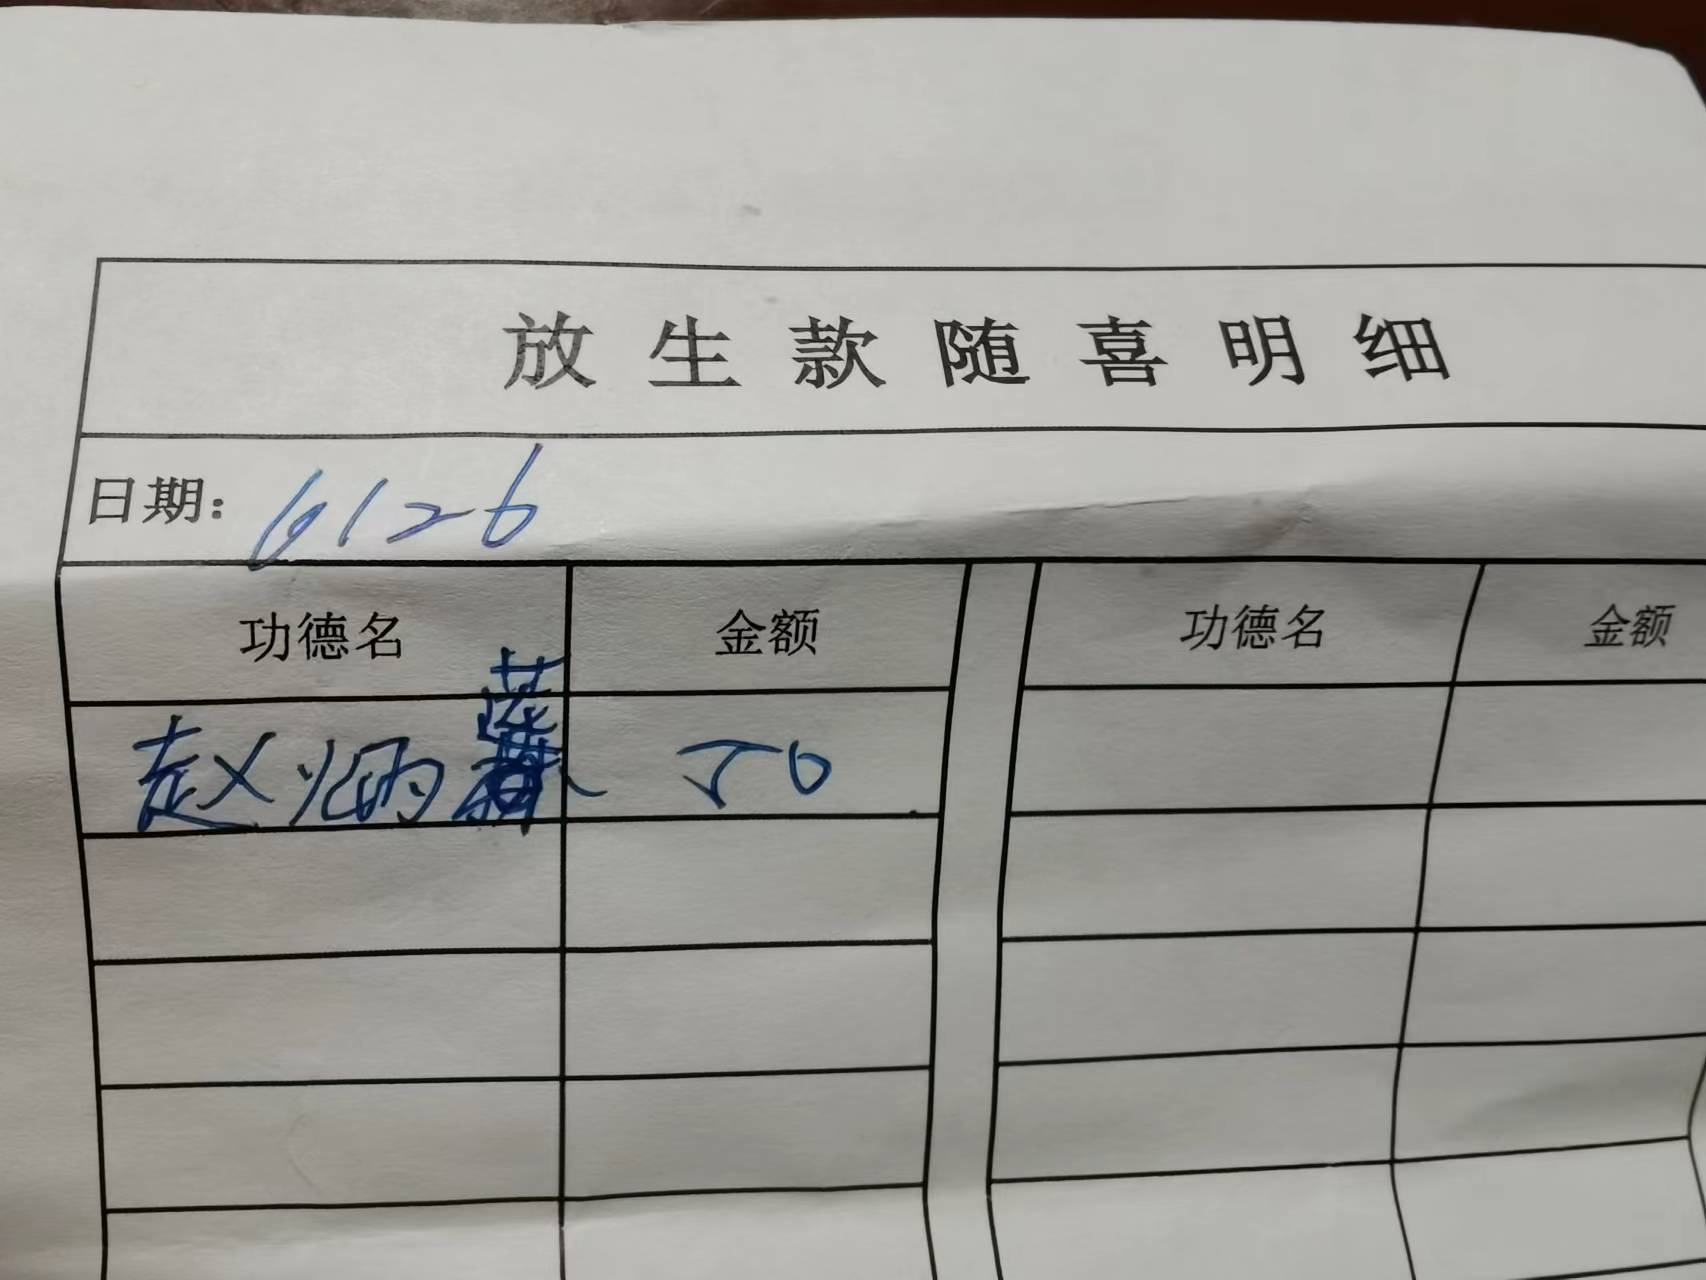 放生款随喜明细
日期: 6126
功德名 金额 功德名 金额
赵炳 50